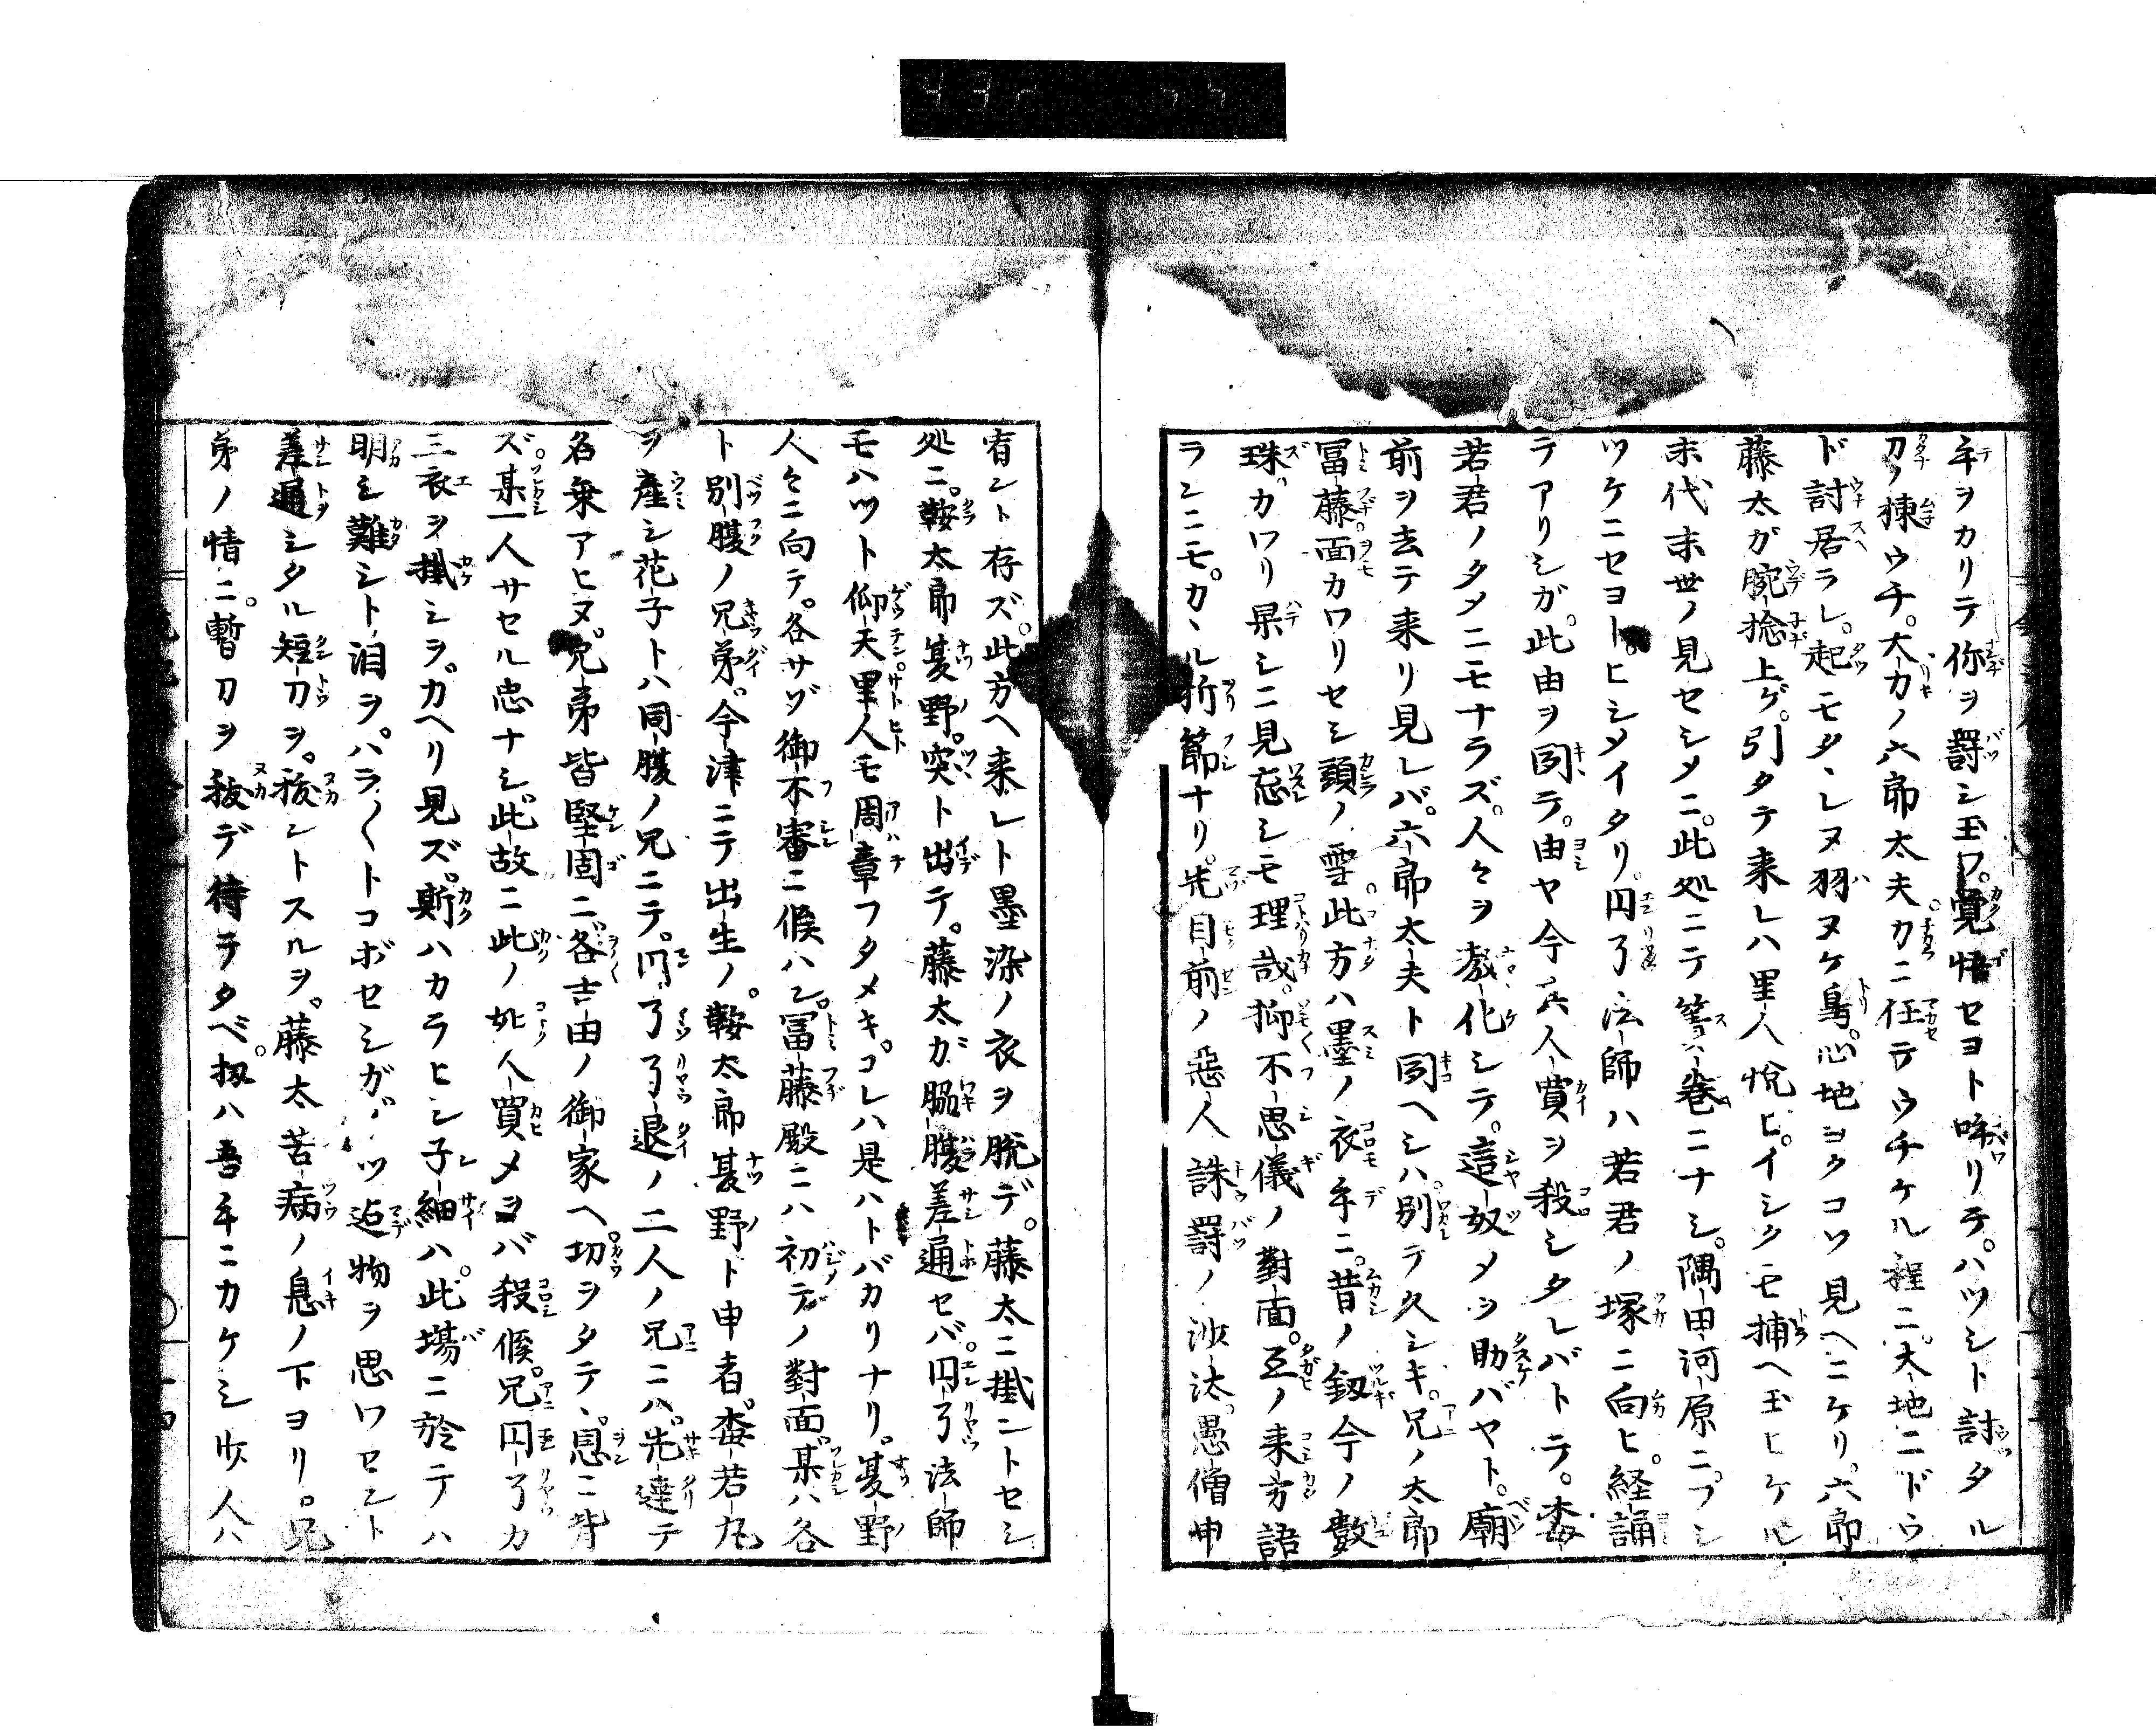 手ヲカリテ你ヲ罸シ玉フ。覚悟セヨト呼リテ。ハツシト討タル
刀ノ棟ウチ。大力ノ六郎太夫力ニ任テウチケル程ニ。大地ニドウ
ド討居ラレ。起モタヽレヌ羽ヌケ鳥。心地ヨクコソ見ヘニケリ。六郎
藤太が腕捻上ゲ。引タテ来レハ里人悦ヒ。イシクモ捕ヘ玉ヒケル。
末代末世ノ見セシメニ。此処ニテ簀巻ニナシ。隅田河原ニフシ
ツケニセヨト。ヒシメイタリ。円了法師ハ若君ノ塚ニ向ヒ。経誦
テアリシガ。此由ヲ聞テ。由ヤ今人買ヲ殺シタレバトテ。梅
若君ノタメニモナラズ。人々ヲ教化シテ。這奴メヲ助バヤト。廟
前ヲ去テ来リ見レバ。六郎太夫ト聞ヘシハ。別テ久シキ。兄ノ太郎
冨藤。面カワリセシ頭ノ雪。此方ハ墨ノ衣手ニ。昔ノ釼今ノ数
珠。カワリ果シニ見忘シモ理哉。抑不思儀ノ對面。互ノ来方語
ランニモ。カヽル折節ナリ。先目前ノ惡人誅罸ノ沙汰。愚僧申
宥ント存ズ。此方ヘ来レト墨染ノ衣ヲ脱デ。藤太ニ掛ントセシ
処ニ。鞍太郎夏野。突ト出テ。藤太ガ脇腹差通セバ。円了法師
モハット仰天里人モ周章フタメキ。コレハ是ハトバカリナリ。夏野
人々ニ向テ。各サゾ御不審ニ候ハン。冨藤殿ニハ初テノ對面。某ハ各
ト別腹ノ兄弟。今津ニテ出生ノ。鞍太郎夏野ト申者。梅若丸
ヲ産シ花子トハ同腹ノ兄ニテ。円了了退ノ二人ノ兄ニハ。先達テ
名乗アヒヌ。兄弟皆堅固ニ。各吉田ノ御家ヘ功ヲタテ、恩ニ背
ズ。某一人サセル忠ナシ。此故ニ此ノ人買メヲバ殺候。兄円了カ
三衣ヲ掛シヲ。カヘリ見ズ。斯ハカラヒシ子細ハ。此場ニ於テハ
明シ難シト泪ヲ。ハラ〱トコボセシガ。物ヲ思ワセント
差通シタル短刀ヲ。抜ントスルヲ。藤太苦病ノ息ノ下ヨリ。兄
弟ノ情ニ。暫刀ヲ抜デ待テタベ。扨ハ吾手ニカケシ少人ハ